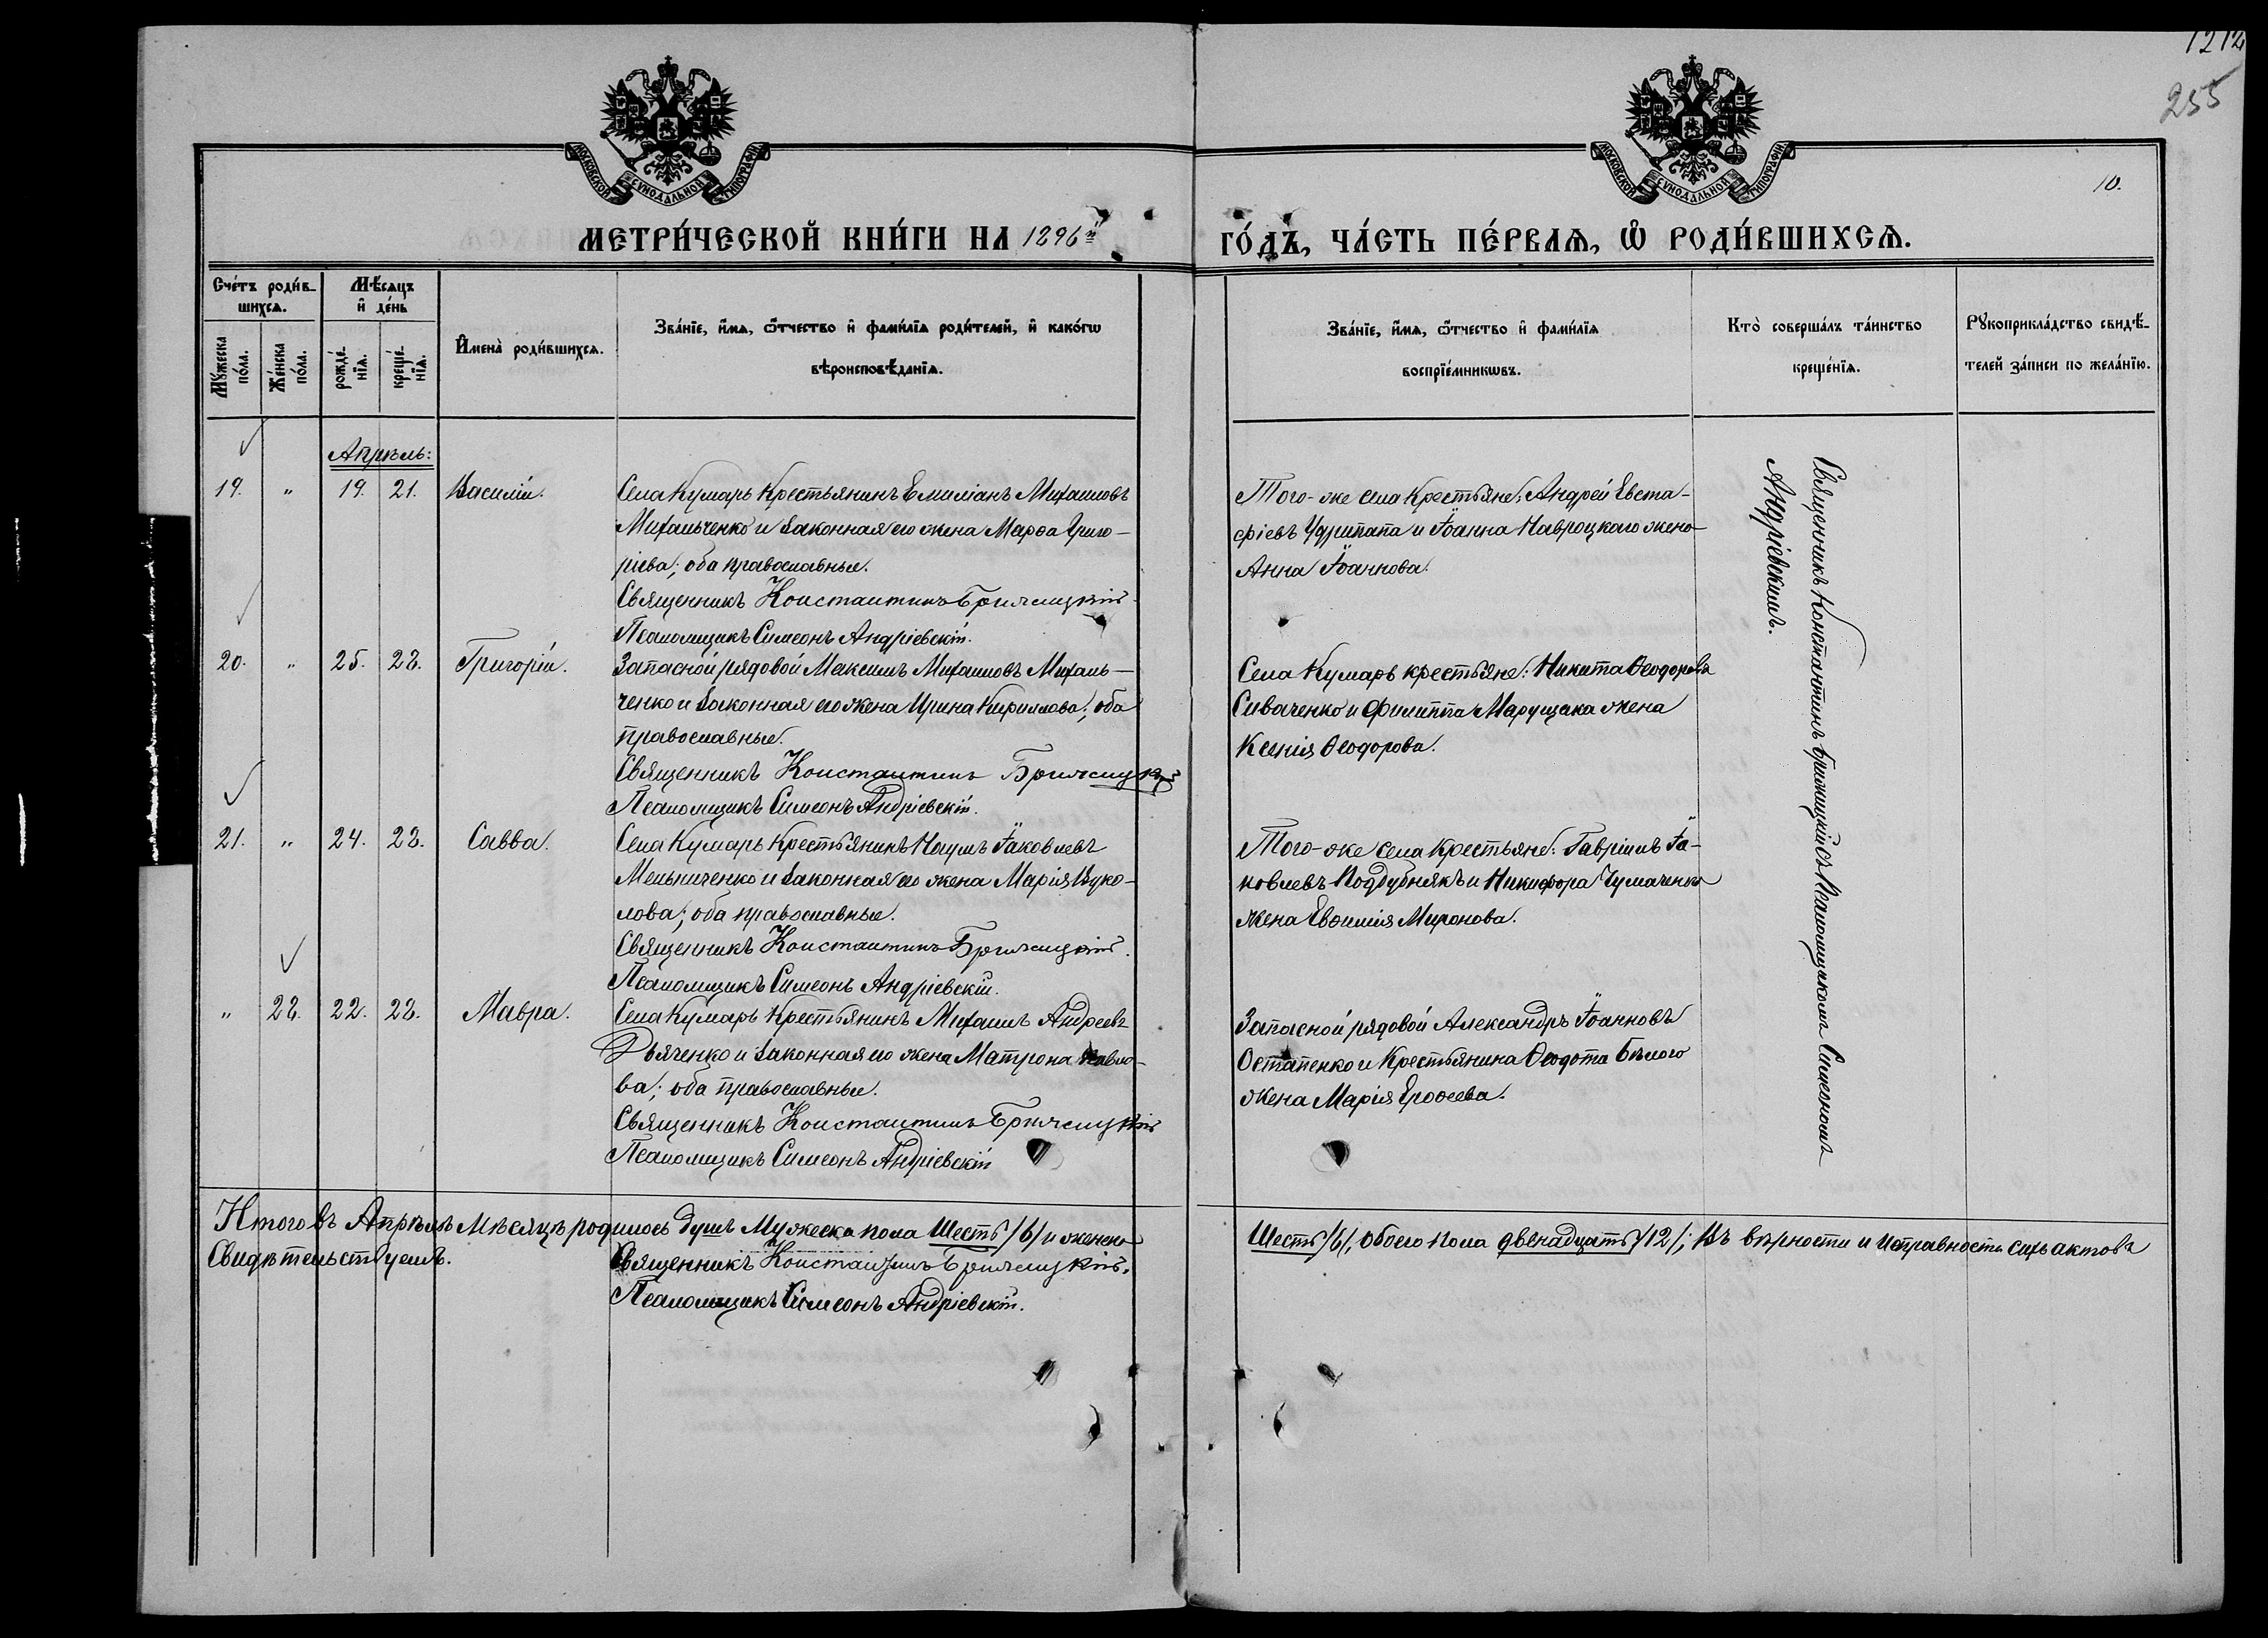 1212
255
10.
МОСКОВСКОЙ СѴНОДАЛЬНОЙ ТИПОГРАФІИ
МОСКОВСКОЙ СѴНОДАЛЬНОЙ ТИПОГРАФІИ
МЕТРИ́ЧЕСКОЙ КНИ́ГИ НА 1896й
ГО́ДЪ, ЧА́СТЬ ПЕ́РВАѦ, Ѽ РОДИ́ВШИХСѦ.
Сче́тъ роди́в-
шихсѧ.
Мꙋ́жеска по́ла.
Же́нска по́ла.
Мѣ́сѧцъ
и҆ де́нь
рожде́-нїѧ.
креще́-нїѧ.
И҆мена̀ роди́вшихсѧ.
Зва́нїе, и҆́мѧ, ѻ҆́тчество и҆ фами́лїѧ роди́телей, и҆ како́гѡ
вѣроисповѣ́данїѧ.
Зва́нїе, и҆́мѧ, ѻ҆́тчество и҆ фами́лїѧ
воспрїе́мникѡвъ.
Кто̀ соверша́лъ та́инство
креще́нїѧ.
Рꙋкоприкла́дство свидѣ́-
телей за́писи по жела́нїю.
Апрѣль:
19. " 19. 21. Василій. Села Кумарь Крестьянинъ Емиліанъ Михаиловъ
Михальченко и законная его жена Марѳа Григо-
ріева; оба православные.
Священникъ Константинъ Брижицкій.
Псаломщикъ Симеонъ Андріевскій.
Того-же села Крестьяне: Андрей Евста-
фіевъ и Іоанна Навроцкаго жена
Анна Іоаннова.
20. " 25. 28. Григорій. Запасной рядовой Максимъ Михаиловъ Михаль-
ченко и законная его жена Ирина Кириллова; оба
православные.
Священникъ Константинъ Брижицкій
Псаломщикъ Симеонъ Андріевскій.
Села Кумарь крестьяне: Никита Ѳеодоровъ
Сиваченко и Филиппа Марущака жена
Ксенія Ѳеодорова.
21. " 24. 28. Савва. Села Кумарь Крестьянинъ Наумъ Іаковлевъ
Мельниченко и законная его жена Марія Вуко-
лова; оба православные.
Священникъ Константинъ Брижицкій.
Псаломщикъ Симеонъ Андріевскій.
Того-же села Крестьяне: Гавріилъ Іа-
ковлевъ Поддубнякъ и Никифора Чумаченка
жена Евѳимія Миронова.
" 28. 22. 28. Мавра. Села Кумарь Крестьянинъ Михаилъ Андреевъ
Дьяченко и законная его жена Матрона Павло-
ва; оба православные.
Священникъ Константинъ Брижицкій
Псаломщикъ Симеонъ Андріевскій
Запасной рядовой Александръ Іоанновъ
Остапенко и Крестьянина Ѳеодота Бѣлого
жена Марія Ероѳеева.
Священникъ Константинъ Брижицкій съ Псаломщикомъ Симеономъ
Андріевскимъ.
Итого въ Апрѣлѣ Мѣсяцѣ родилось душъ Мужеска пола Шесть /6/ и женска
Шесть /6/, обоего пола двенадцать /12/; Въ вѣрности и исправность сихъ актовъ
Свидѣтельствуемъ.
Священникъ Константинъ Брижицкій.
Псаломщикъ Симеонъ Андріевскій.